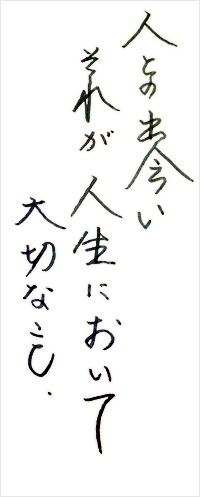 人との出会い
それが
人生において
大切なこと.